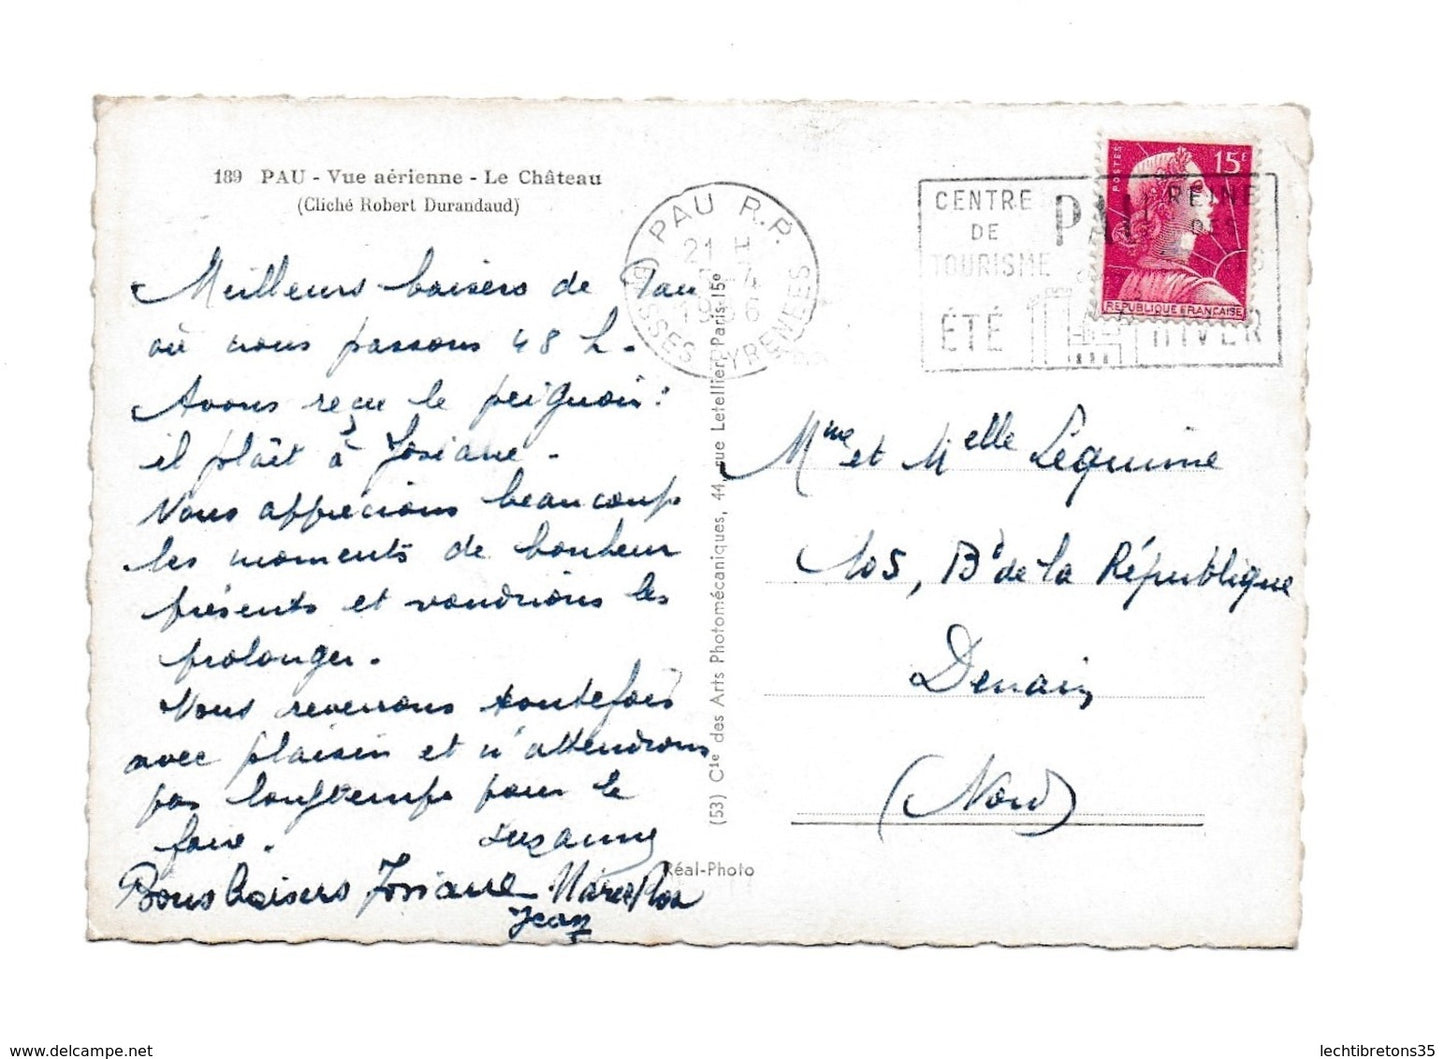 189 PAU - Vue aérienne - Le Château
(Cliché Robert Durandaud)
Meilleurs baisers de Pau
où nous passons 48 h.
Avons reçu le peignoir :
il plaît à Josiane.
Nous apprécions beaucoup
les moments de bonheur
présents et voudrions les
prolonger.
Nous reviendrons toutefois
avec plaisir et n'attendrons
pas longtemps pour le
faire. Suzanne
Bons baisers Josiane
Jean
PAU R.P.
21 H
BSSES PYRENEES
CENTRE
DE
TOURISME
PAU
REINE
DES
ÉTÉ
HIVER
POSTES
15F
REPUBLIQUE FRANCAISE
(53) Cie des Arts Photomécaniques, 44, rue Letellier, Paris-15e
Réal-Photo
Mme et Melle Lequime
105, Bd de la République
Denain
(Nord)
delcampe.net
lechtibretons35